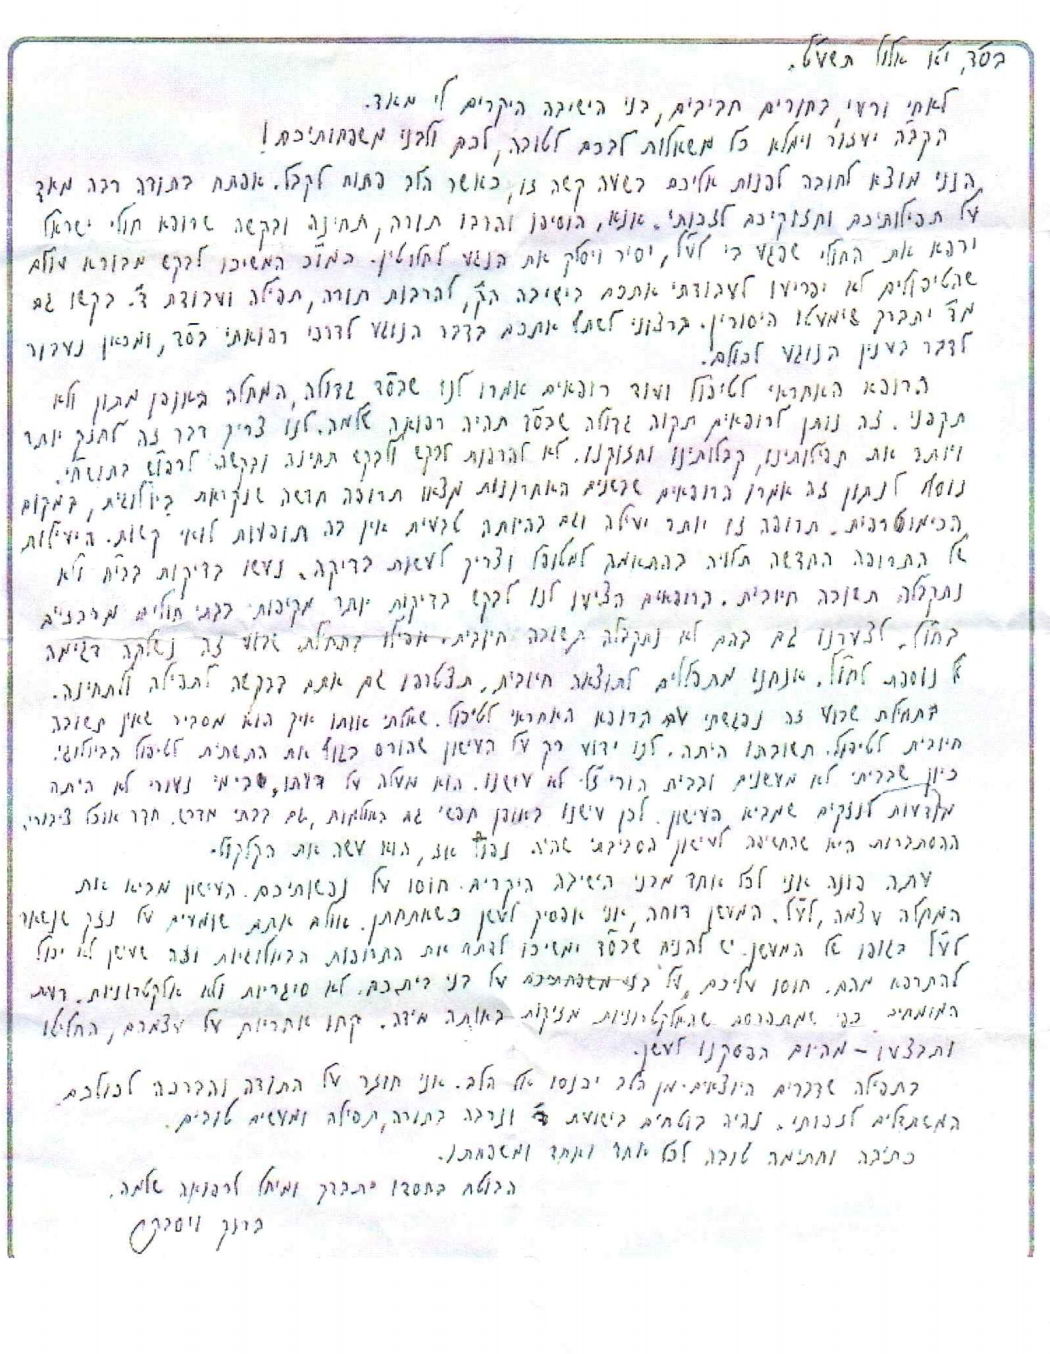 בס"ד, י"ו אלול תשע"ט.
לאחי ורעי, בחורים חביבים, בני הישיבה היקרים לי מאד.
הקב"ה יעזור וימלא כל משאלות לבכם לטובה, לכם ולבני משפחותיכם!
הנני מוצא לחובה לפנות אליכם בשעה קשה זו, כאשר הלב פתוח לקבל. אפתח בתודה רבה מאד
על תפילותיכם וחזוקיכם לזכותי. אנא, הוסיפו והרבו תורה, תחינה ובקשה שרופא חולי ישראל
ירפא את החולי שפגע בי ל"ע, יסיר ויסלק את הנגע לחלוטין. כמו"כ המשיכו לבקש מבורא עולם
שהטיפולים לא יפריעו לעבודתי אתכם בישיבה הק', להרבות תורה, תפילה ועבודת ד'. בקשו גם
מד' יתברך שימעטו היסורין. ברצוני לשתף אתכם בדבר הנוגע לדרכי רפואתי בס"ד, ומכאן נעבור
לדבר בענין הנוגע לכולם.
הרופא האחראי לטיפול ועוד רופאים אמרו לנו שבס"ד גדולה, המחלה באופן מתון ולא
תקפני. זה נותן לרופאים תקוה גדולה שבס"ד תהיה רפואה שלמה. לנו צריך דבר זה לחזק יותר
ויותר את תפילותינו, קבלותינו וחזוקנו. לא להרפות לבקש ולבקש תחינה ובקשה לרפו"ש בתושח"י.
נוסף לנתון זה אמרו הרופאים שבשנים האחרונות מצאו תרופה חדשה שנקראת ביולוגית, במקום
הכימוטרפית. תרופה זו יותר יעילה וגם בהיותה טבעית אין בה תופעות לואי קשות. היעילות
של התרופה החדשה תלויה בהתאמה למטופל וצריך לעשות בדיקה. נעשו בדיקות בביה"ח ולא
נתקבלה תשובה חיובית. הרופאים הציעו לנו לבקש בדיקות יותר מקיפות בבתי חולים מרכזיים
בחו"ל. לצערנו גם בהם לא נתקבלה תשובה חיובית. אפילו בתחלת שבוע זה נשלחה דגימה
נוספת לחו"ל. אנחנו מתפללים לתוצאה חיובית. תצטרפו גם אתם בבקשה לתפילה ולתחינה.
בתחלת שבוע זה נפגשתי עם הרופא האחראי לטיפול. שאלתי אותו איך הוא מסביר שאין תשובה
חיובית לטיפול. תשובתו היתה. לנו ידוע רק על העישון שהורס בגוף את התשתית לטיפול הביולוגי.
כיון שבביתי לא מעשנים ובבית הורי ז"ל לא עישנו. הוא מעלה על דעתו, שבימי נעורי לא היתה
מודעות לנזקים שמביא העישון. לכן עישנו באופן חפשי גם באולמות, גם בבתי מדרש. חדר אוכל ציבורי.
ההסתברות היא שהחשיפה לעישון הסביבתי שהיה נפוץ אז, הוא עשה את הקלקול.
עתה פונה אני לכל אחד מבני הישיבה היקרים. חוסו על נפשותיכם. העישון מביא את
המחלה עצמה, ל"ע. המעשן דוחה, אני אפסיק לעשן כשאתחתן. אולם אתם שומעים על נזק שנשאר
לע"ע בגופו של המעשן. יש להניח שבס"ד ימשיכו לפתח את התרופות הביולוגיות ומה שמעשן לא יכול
להתרפא מהם. חוסו עליכם, על בני ביתכם. לא סיגריות ולא אלקטרוניות. דעת
המומחים כפי שמתפרסם שהאלקטרוניות מזיקות באותה מידה. קחו אחריות על עצמכם, החליטו
ותבצעו – מהיום הפסקנו לעשן.
בתפילה שדברים היוצאים מן הלב יכנסו אל הלב. אני חוזר על התודה והברכה לכולכם
המשתדלים לזכותי. נהיה בוטחים בישועת ד' ונרבה בתורה, תפילה ומעשים טובים.
כתיבה וחתימה טובה לכל אחד ואחד ומשפחתו.
הבוטח בחסדו יתברך ומיחל לרפואה שלמה,
ברוך ויסבקר